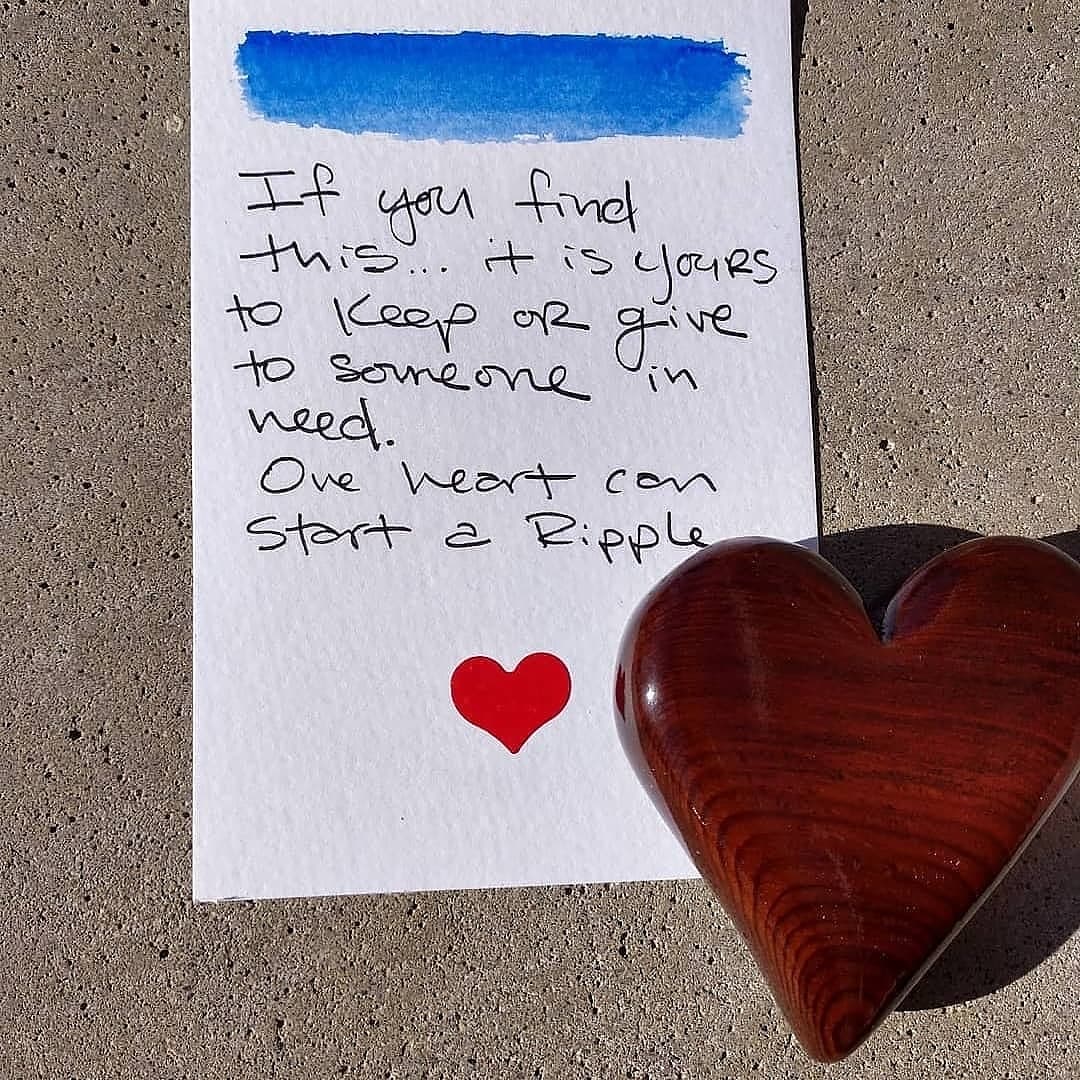 If you find
this... it is yours
to keep or give
to someone in
need.
One heart can
start a Ripple